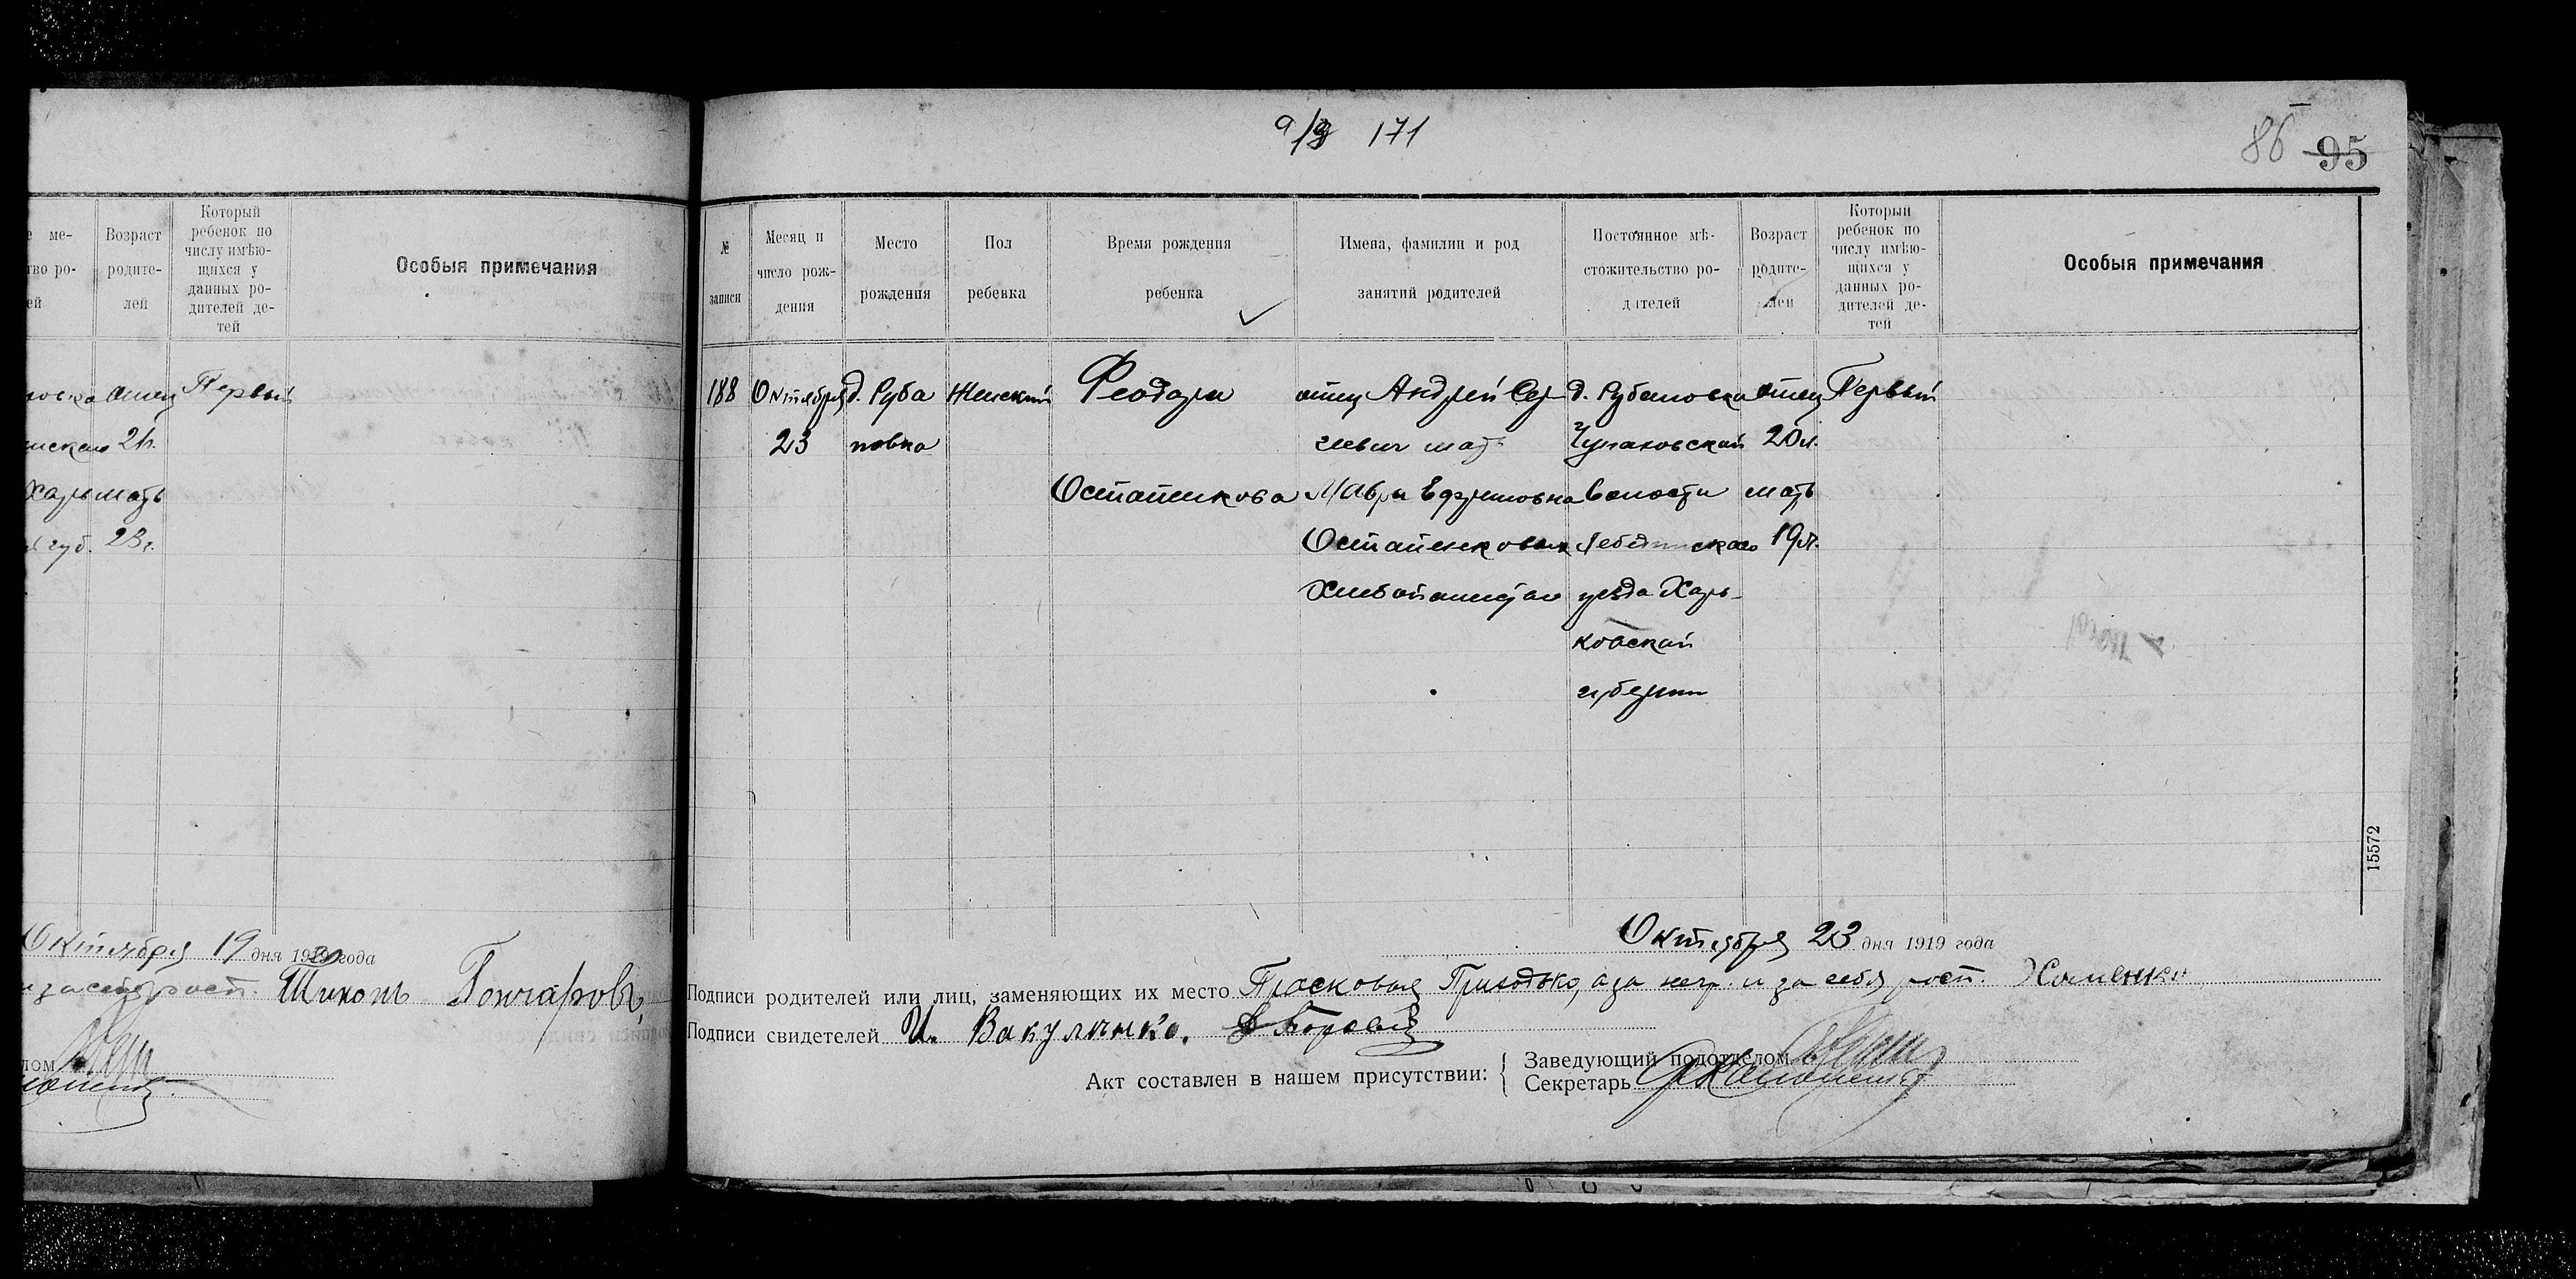 9/8 171
86 95
Возраст родите-лей
Который ребенок по числу имѣю-щихся у данных ро-дителей де-тей
Особыя примечания
отец Первый
21г.
Харь мать
губ. 23г.
Октября 19 дня 19 года
Тихон Гончаров
№ записи
Месяц и число рож-дения
Место рождения
Пол ребенка
Время рождения ребенка
Имена, фамилии и род занятий родителей
Постоянное мѣ-стожительство ро-дителей
Возраст родите-лей
Который ребенок по числу имѣю-щихся у данных ро-дителей де-тей
Особыя примечания
188 Октября д. Руба Женский Феодора отец Андрей Сер д. Рубановка отец Первый
23 новка геевич мать Чупаховской 20л.
Остапенкова Мавра Ефимовна волости мать
Остапенковы Лебединского 19л.
Хлебопашцы уезда Харь-
ковской
губернии
15572
Октября 23 дня 1919 года
Подписи родителей или лиц, заменяющих их место Прасковья Приходько, а за негр. и за себя росп. Хоменко
Подписи свидетелей И. Вакуленко.
Акт составлен в нашем присутствии:
Заведующий подотделом
Секретарь